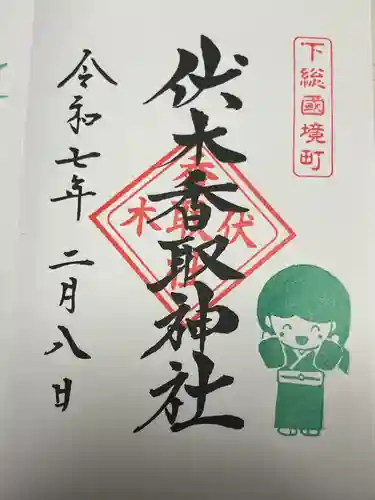 下総國境町
伏木香取神社
伏木
令和七年 二月八日